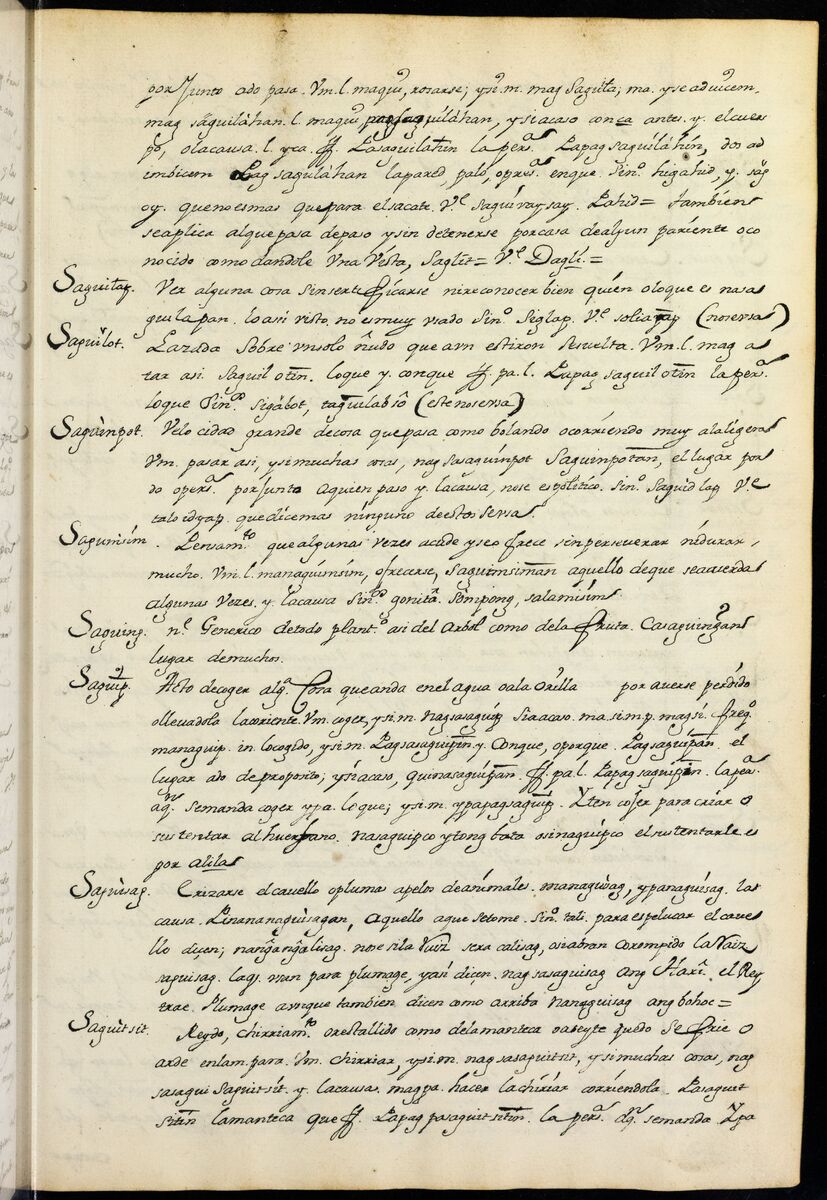 por Junto ado pasa. Vm. l. maqui, rosarse; ysi. m. mag saguila; ma. y se aduicem.
mag saguiláhan. l. maqui pagsaguiláhan, y si acaso con ca antes. y. el cuer
po, olacausa. l. yca. ff. Pasaguilahin la pers.ª Papag saguiláhin, dos ad
imbicem Pag saguiláhan lapared, palo, opers.ª enque. Sin.º higahid, y. sag
oy. quenoesmas que para elsacate. V.e Saguiraysay. Pahid = tambien
seaplica alque pasa depaso y sin detenerse por casa de algun pariente oco
nocido como dandole Vna Vista, Saglit = V.e Dagli. =
Saguilap. Ver alguna cosa sin sertificarse nireconocer bien quien oloque es nasa
guilapan. lo asi visto. no es muy vsado Sin.º Siglap. V.e (no sevsa)
Saguilot. Lazada sobre vnsolo ñudo que a vn estiron se suelta. Vm. l. mag a
tar asi. Saguil otin. loque y. conque ff pa. l. Papag saguil otin la pers.ª
loque Sin.º Sigábot, (este no se vsa)
Saguinpot. Velocidad grande decosa que pasa como bolando ocorriendo muy ala ligera
Vm. pasar asi, y si muchas cosas, nag sasaguinpot Saguinpotan, el lugar por
do opers.ª por Junto aquien paso y. la causa, nose es politico. Sin.º Saguidlap V.e
taloidyap. que dicemas ninguno de estos se vsa.
Sagumsim. Pensam.to que algunas vezes acude y se ofrece sin perseuerar nidurar,
mucho. Vm. l. managuimsim, ofrecerse, Saguimsiman aquello de que se acuerda
algunas Vezes. y. lacausa Sin.º gonita. Sompong, salamisim
Saguing. n.e Generico detodo plant.º asi del Arbol como dela fruta. Casaguingan
lugar de muchos.
Saguip. Acto decoger alg.ª Cosa que anda en el agua oala orilla por averse perdido
ollevadola lacoriente. Vm. coger, y si. m. nagsasaguip Si a acaso. ma. si m. p. magsi. freq.º
managuip. in. lo cogido, y si m. Pagsasaguipin y. Conque, oporque. Pagsaguipan. el
lugar ado de proposito; y si acaso, quinasaguipan. ff. pa. l. Papag saguipin. la pers.ª
aq.n semanda coger y pa. lo que; y si. m. ypapagsaguip. Yten cojer para criar o
sustentar al huerfano. nasaguipco ytong bata osinaguipco el sustentarle es
por alila
Saguisag. Erizarse el cavello opluma apelos deanimales. managuisag, y panaguisag. las
causa. Pinananaguisagan, aquello aque se tome. Sin.º tali. para espelucar el cave
llo dicen; nangangalisag. no se si la raiz sera calisag, asi abran corompido la raiz
saguisag. laq. vsan para plumage, y asi dicen. nag sasaguisag ang Hari. el Rey
trae. Plumage aunque tambien dicen como arriba nanaguisag ang bohoc =
Saguitsit. Reydo, chirriam.to orestallido como delamanteca oaseyte q.do se frie o
arde enlampara. Vm. chirriar, y si. m. nag sasaguitsit, y si muchas cosas, nag
sasagui saguitsit. y. la causa. mag pa. hacer la chirriar corriendola. Pasaguit
sitin lamanteca que ff. Papag pasaguitsitin. la pers.ª aq.n semanda Ypa